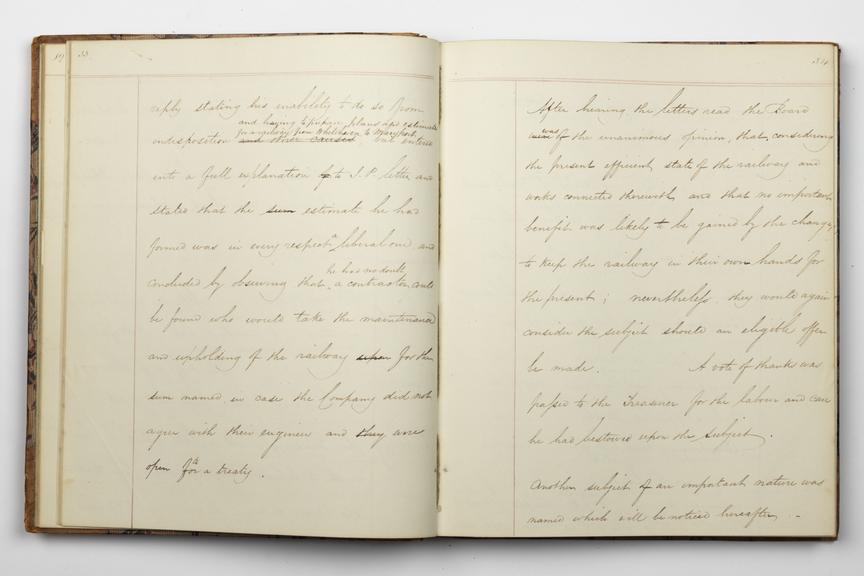 19
33
reply stating his inability to do so from
and having to prepare plans and estimates
for a railway from Whitehaven to Maryport
indisposition and other causes, but entered
into a full explanation of to I.P. letter and
stated that the sum estimate he had
formed was in every respect a liberal one and
he had no doubt
concluded by observing that a contractor could
be found who would take the maintenance
and upholding of the railway upon for the
sum named in case the Company did not
agree with their engineer and they were
open for a treaty.
34
After hearing the letters read the Board
was
were of the unanimous opinion, that, considering
the present efficient state of the railway and
works connected therewith and that no important
benefit was likely to be gained by the change,
to keep the railway in their own hands for
the present; nevertheless they would again
consider the subject should an eligible offer
be made. A vote of thanks was
passed to the Treasurer for the labour and care
he had bestowed upon the subject.
Another subject of an important nature was
named which will be noticed hereafter. -